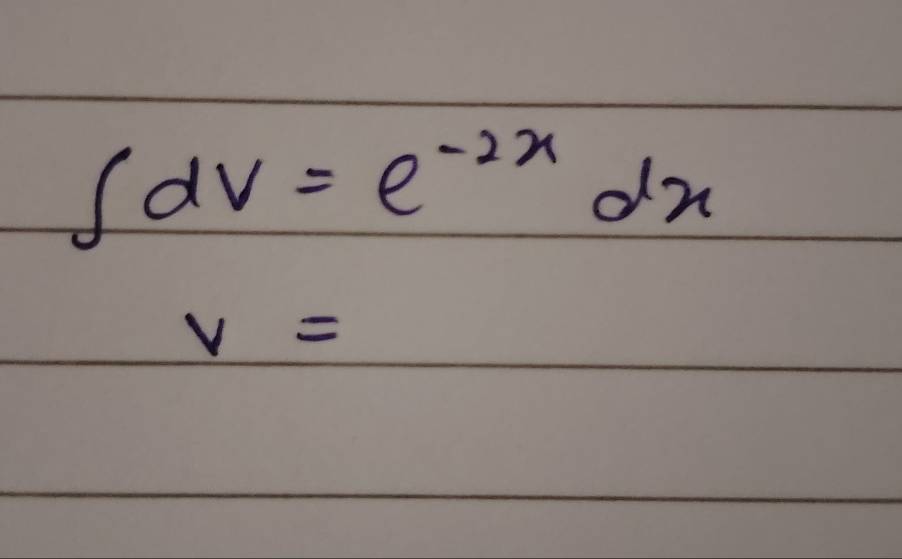 ∫ dv = e^{-2x} dx
v =